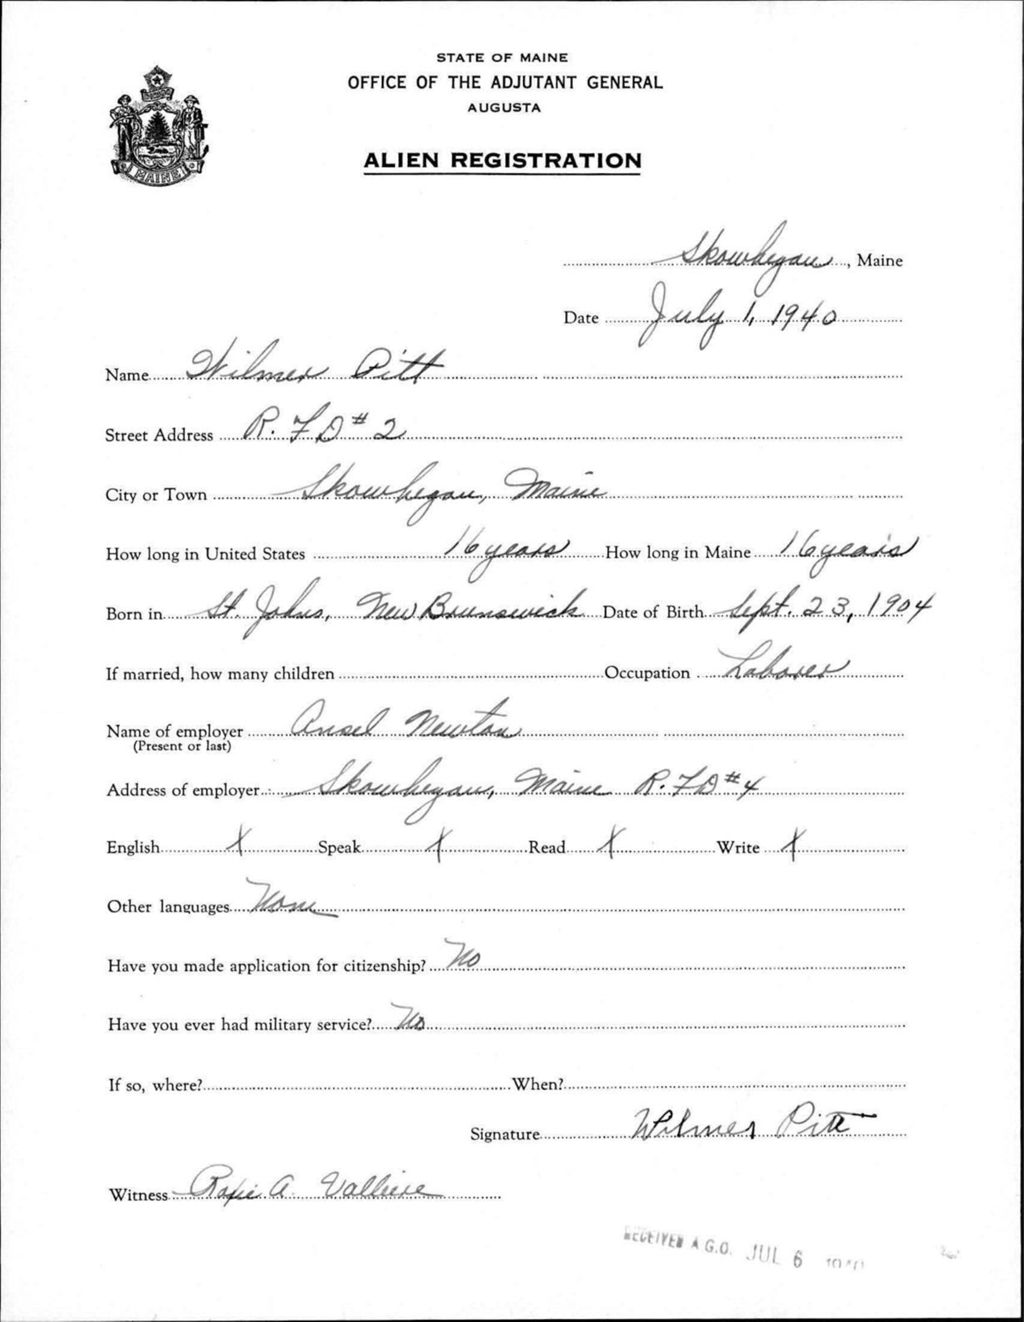 STATE OF MAINE
OFFICE OF THE ADJUTANT GENERAL
AUGUSTA
ALIEN REGISTRATION
MAINE
Skowhegan, Maine
Date July 1, 1940
Name Wilmer Pitt
Street Address R. F D # 2
City or Town Skowhegan, Maine
How long in United States 16 years How long in Maine 16 years
Born in St. Johns, New Brunswick Date of Birth Sept. 23, 1904
If married, how many children Occupation Laborer
Name of employer Ansel Newton
(Present or last)
Address of employer Skowhegan, Maine R. F D # 4
English X Speak X Read X Write X
Other languages None
Have you made application for citizenship? No
Have you ever had military service? No
If so, where? When?
Signature Wilmer Pitt
Witness Roxie A. Valliere
RECEIVED A.G.O. JUL 6 1940